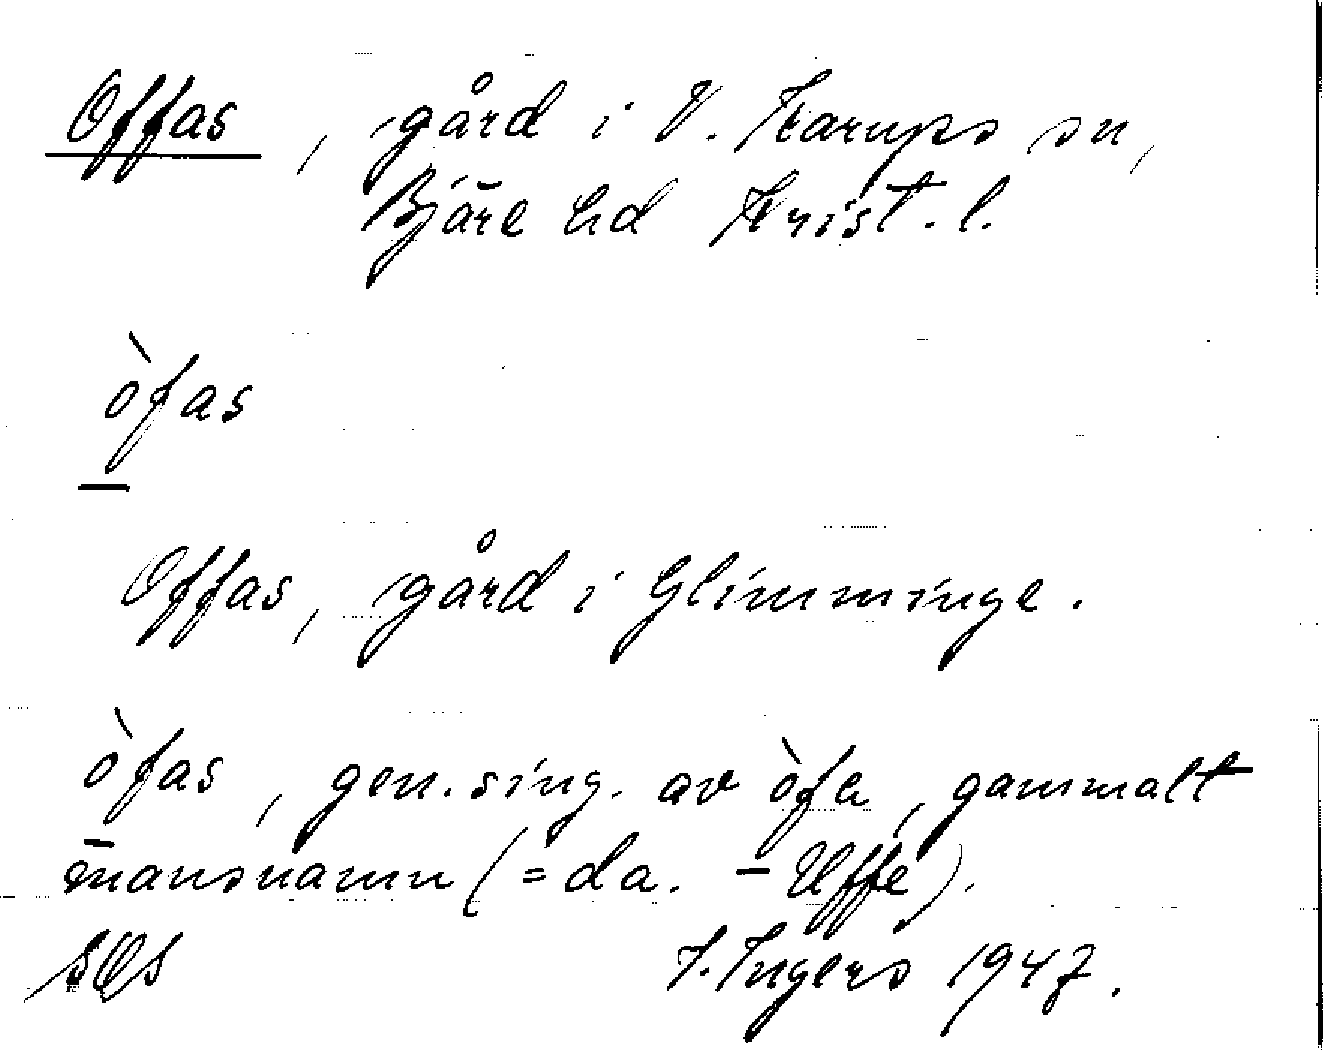 Offas, gård i V. Karups sn,
Bjäre hd Krist. l.
òfas
Offas, gård i Glimminge.
òfas, gen. sing. av òfa, gammalt
mansnamn (= da. Uffe).
I. Ingers 1947.